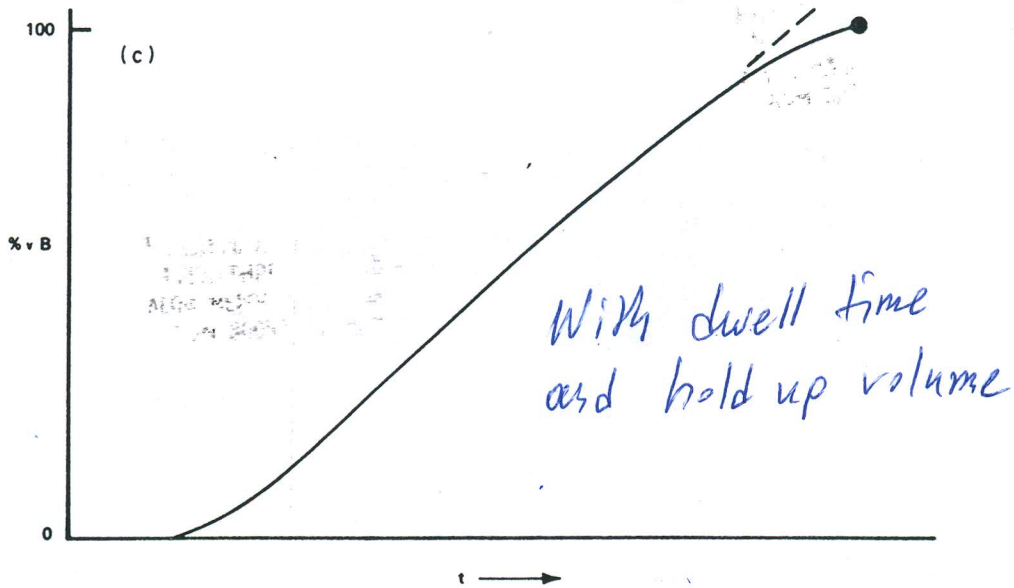 100
(c)
% v B
With dwell time
and hold up volume
0
t